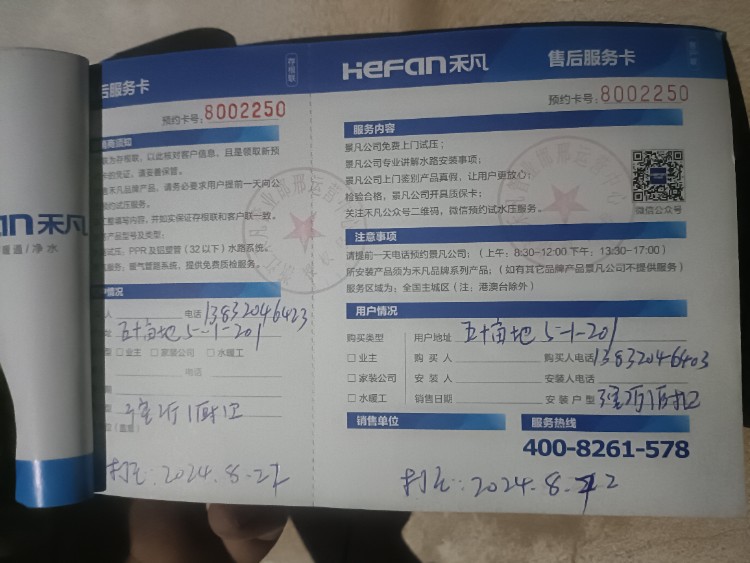 an禾凡
暖通/净水
后服务卡
存根联
预约卡号:8002250
商须知
联为存根联,以此核对客户信息,且是领取新预
卡的凭证,请妥善保管。
禾凡品牌产品,请务必要求用户提前一天向公
试压服务。
整填写内容,并如实保证存根联和客户联一致。
产品型号及类型:
试压、PPR及铝塑管(32以下)水路系统。
服务、暖气管路系统,提供免费质检服务。
情况
人 电话13832046423
址 五十亩地5-1-201
型 □业主 □家装公司 □水暖工
电话
期
型 3室2厅1厨1卫
位(盖章)
打压:2024.8.22
HeFan禾凡 售后服务卡
预约卡号:8002250
服务内容
景凡公司免费上门试压;
景凡公司专业讲解水路安装事项;
景凡公司上门鉴别产品真假,让用户更放心;
检验合格,景凡公司开具质保卡;
关注禾凡公众号二维码,微信预约试水压服务。
微信公众号
注意事项
请提前一天电话预约景凡公司;(上午:8:30-12:00 下午:13:30-17:00)
所安装产品须为禾凡品牌系列产品;(如有其它品牌产品景凡公司不提供服务)
服务区域为:全国主城区(注:港澳台除外)
用户情况
购买类型 用户地址 五十亩地5-1-201
□业主 购买人 购买人电话13832046403
□家装公司 安装人 安装人电话
□水暖工 销售日期 安装户型 3室2厅1厨1卫
销售单位 服务热线
400-8261-578
打压:2024.8.22